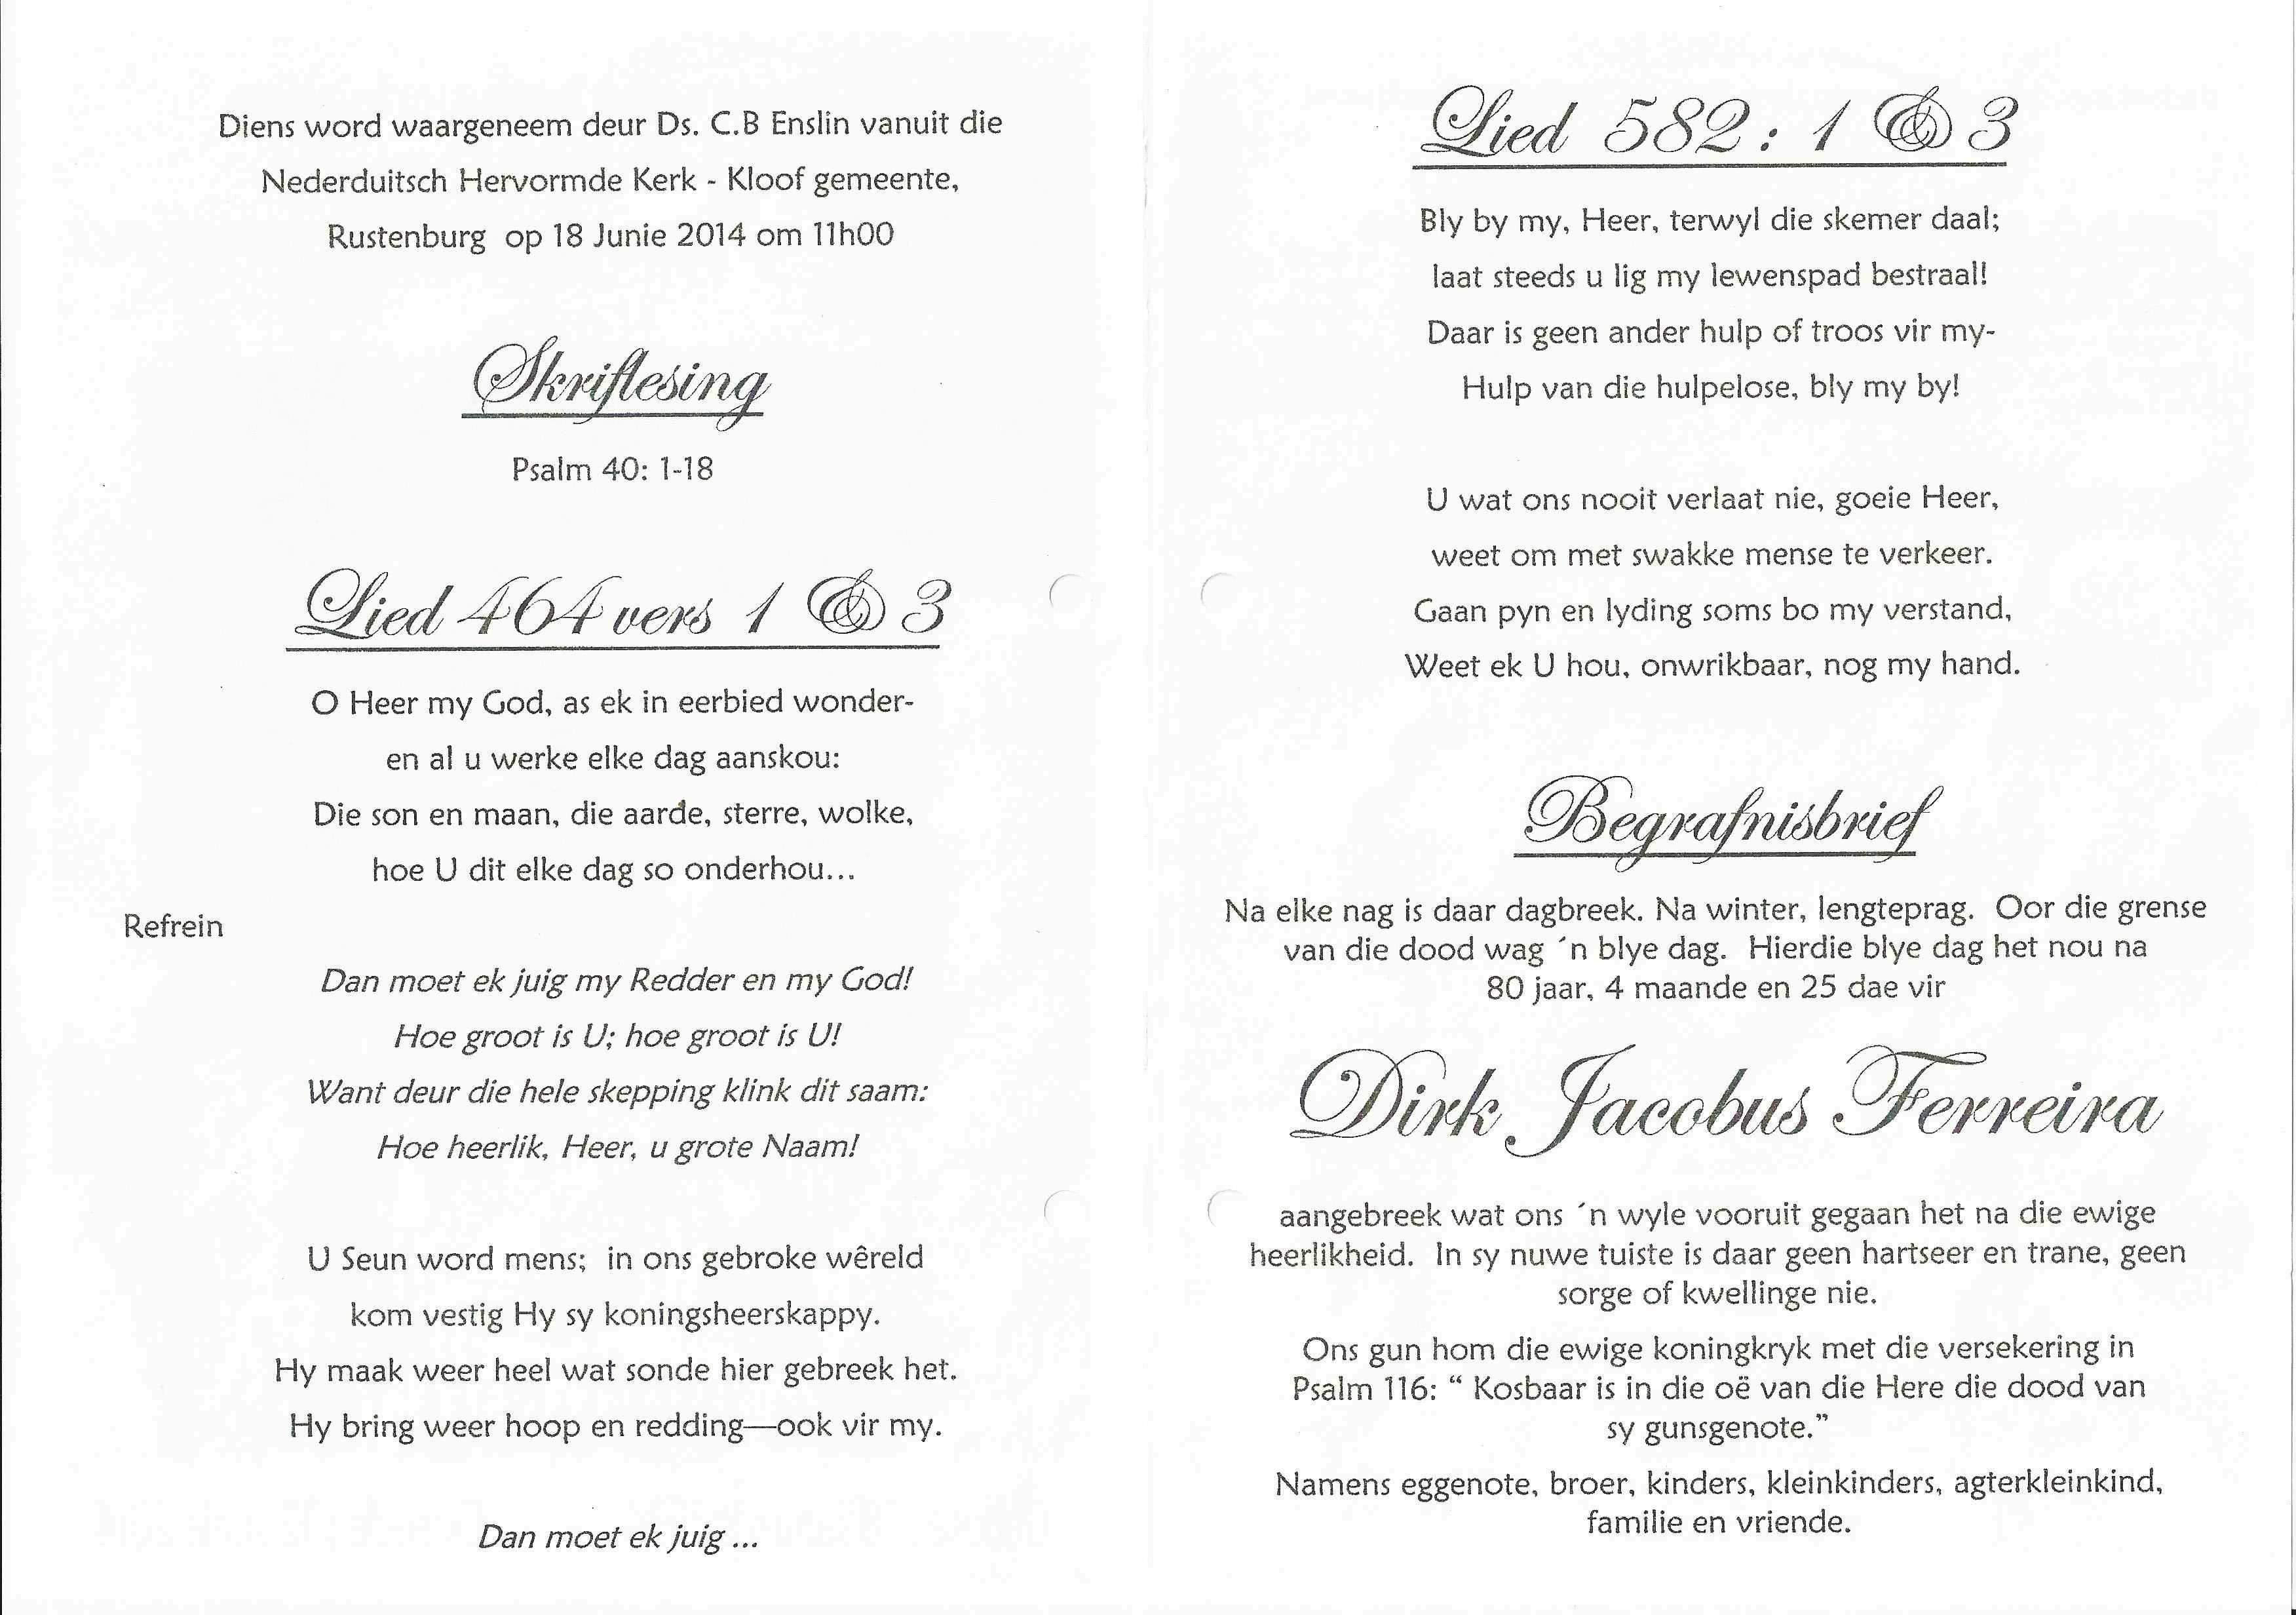 Diens word waargeneem deur Ds. C.B Enslin vanuit die
Nederduitsch Hervormde Kerk - Kloof gemeente,
Rustenburg op 18 Junie 2014 om 11h00
Skriflesing
Psalm 40: 1-18
Lied 464 vers 1 & 3
O Heer my God, as ek in eerbied wonder-
en al u werke elke dag aanskou:
Die son en maan, die aarde, sterre, wolke,
hoe U dit elke dag so onderhou...
Refrein
Dan moet ek juig my Redder en my God!
Hoe groot is U; hoe groot is U!
Want deur die hele skepping klink dit saam:
Hoe heerlik, Heer, u grote Naam!
U Seun word mens; in ons gebroke wêreld
kom vestig Hy sy koningsheerskappy.
Hy maak weer heel wat sonde hier gebreek het.
Hy bring weer hoop en redding—ook vir my.
Dan moet ek juig ...
Lied 582: 1 & 3
Bly by my, Heer, terwyl die skemer daal;
laat steeds u lig my lewenspad bestraal!
Daar is geen ander hulp of troos vir my-
Hulp van die hulpelose, bly my by!
U wat ons nooit verlaat nie, goeie Heer,
weet om met swakke mense te verkeer.
Gaan pyn en lyding soms bo my verstand,
Weet ek U hou, onwrikbaar, nog my hand.
Begrafnisbrief
Na elke nag is daar dagbreek. Na winter, lengteprag. Oor die grense
van die dood wag ´n blye dag. Hierdie blye dag het nou na
80 jaar, 4 maande en 25 dae vir
Dirk Jacobus Ferreira
aangebreek wat ons ´n wyle vooruit gegaan het na die ewige
heerlikheid. In sy nuwe tuiste is daar geen hartseer en trane, geen
sorge of kwellinge nie.
Ons gun hom die ewige koningkryk met die versekering in
Psalm 116: “ Kosbaar is in die oë van die Here die dood van
sy gunsgenote.”
Namens eggenote, broer, kinders, kleinkinders, agterkleinkind,
familie en vriende.